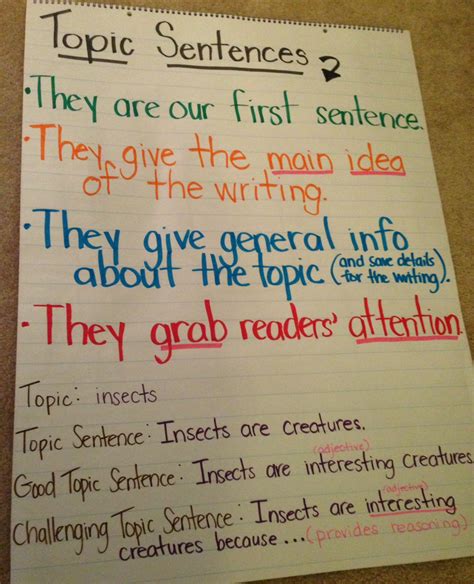 Topic Sentences
• They are our first sentence.
• They give the main idea
of the writing.
• They give general info
about the topic (and save details
for the writing).
• They grab readers' attention.
Topic: insects
Topic Sentence: Insects are creatures.
(adjective)
Good Topic Sentence: Insects are interesting creatures.
(adjective)
Challenging Topic Sentence: Insects are interesting
creatures because ... (provides reasoning)